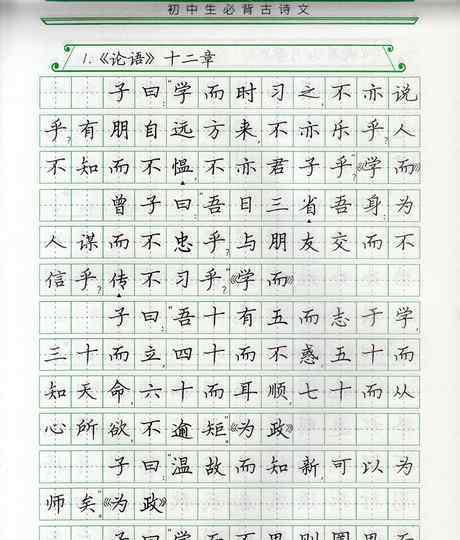 初中生必背古诗文
1.《论语》十二章
子曰:“学而时习之,不亦说
乎?有朋自远方来,不亦乐乎?人
不知而不愠,不亦君子乎?”《学而》
曾子曰:“吾日三省吾身:为
人谋而不忠乎?与朋友交而不
信乎?传不习乎?”《学而》
子曰:“吾十有五而志于学,
三十而立,四十而不惑,五十而
知天命,六十而耳顺,七十而从
心所欲,不逾矩。”《为政》
子曰:“温故而知新,可以为
师矣。”《为政》
子曰:“学而不思则罔,思而